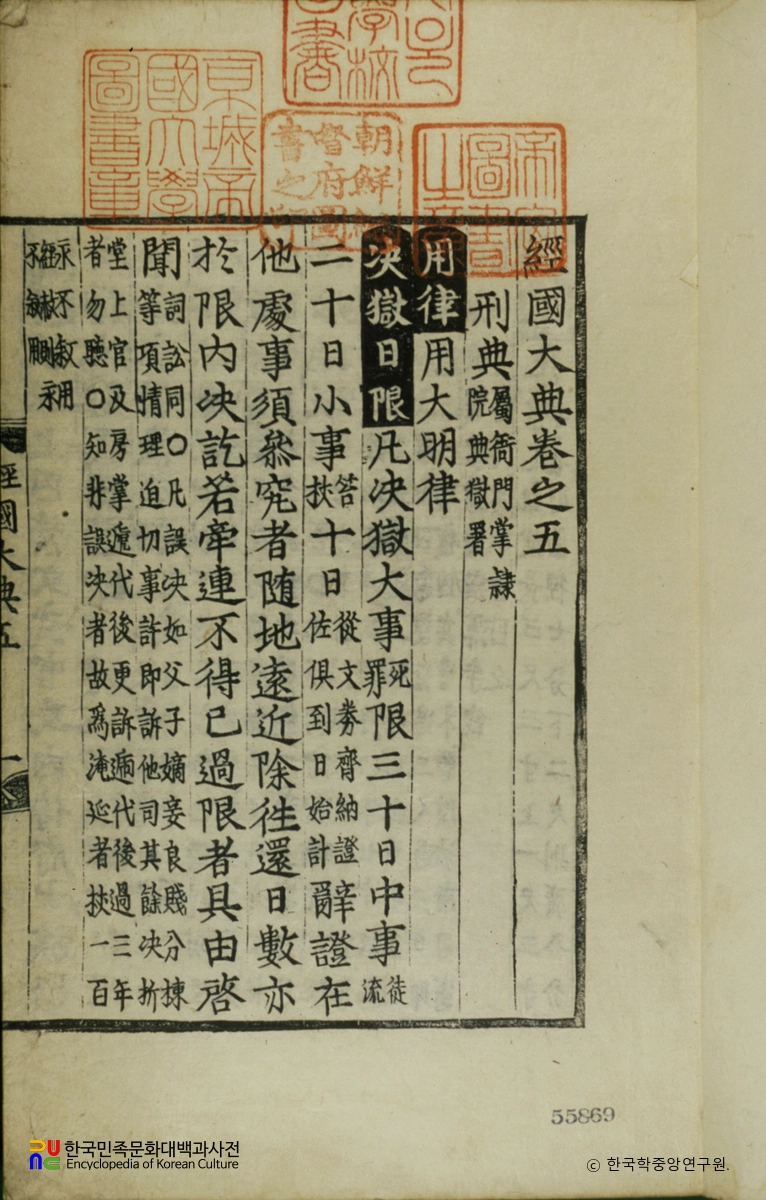 京城帝
國大學
圖書章
朝鮮總
督府圖
書之印
帝室
圖書
之章
經國大典卷之五
刑典屬衙門掌隷院典獄署
用律用大明律
决獄日限凡决獄大事死罪限三十日中事徒流
二十日小事笞杖十日從文劵齊納證佐俱到日始計辭證在
他處事須叅究者隨地遠近除徃還日數亦
於限內决訖若牽連不得已過限者具由啓
聞詞訟同○凡誤决如父子嫡妾良賤分揀等項情理迫切事許即訴他司其餘决折
堂上官及房掌遞代後更訴遞代後過三年者勿聽○知非誤决者故爲淹延者杖一百
永不敘用經赦則永不敘用
經國大典五 一
55869
한국민족문화대백과사전
Encyclopedia of Korean Culture
ⓒ 한국학중앙연구원.